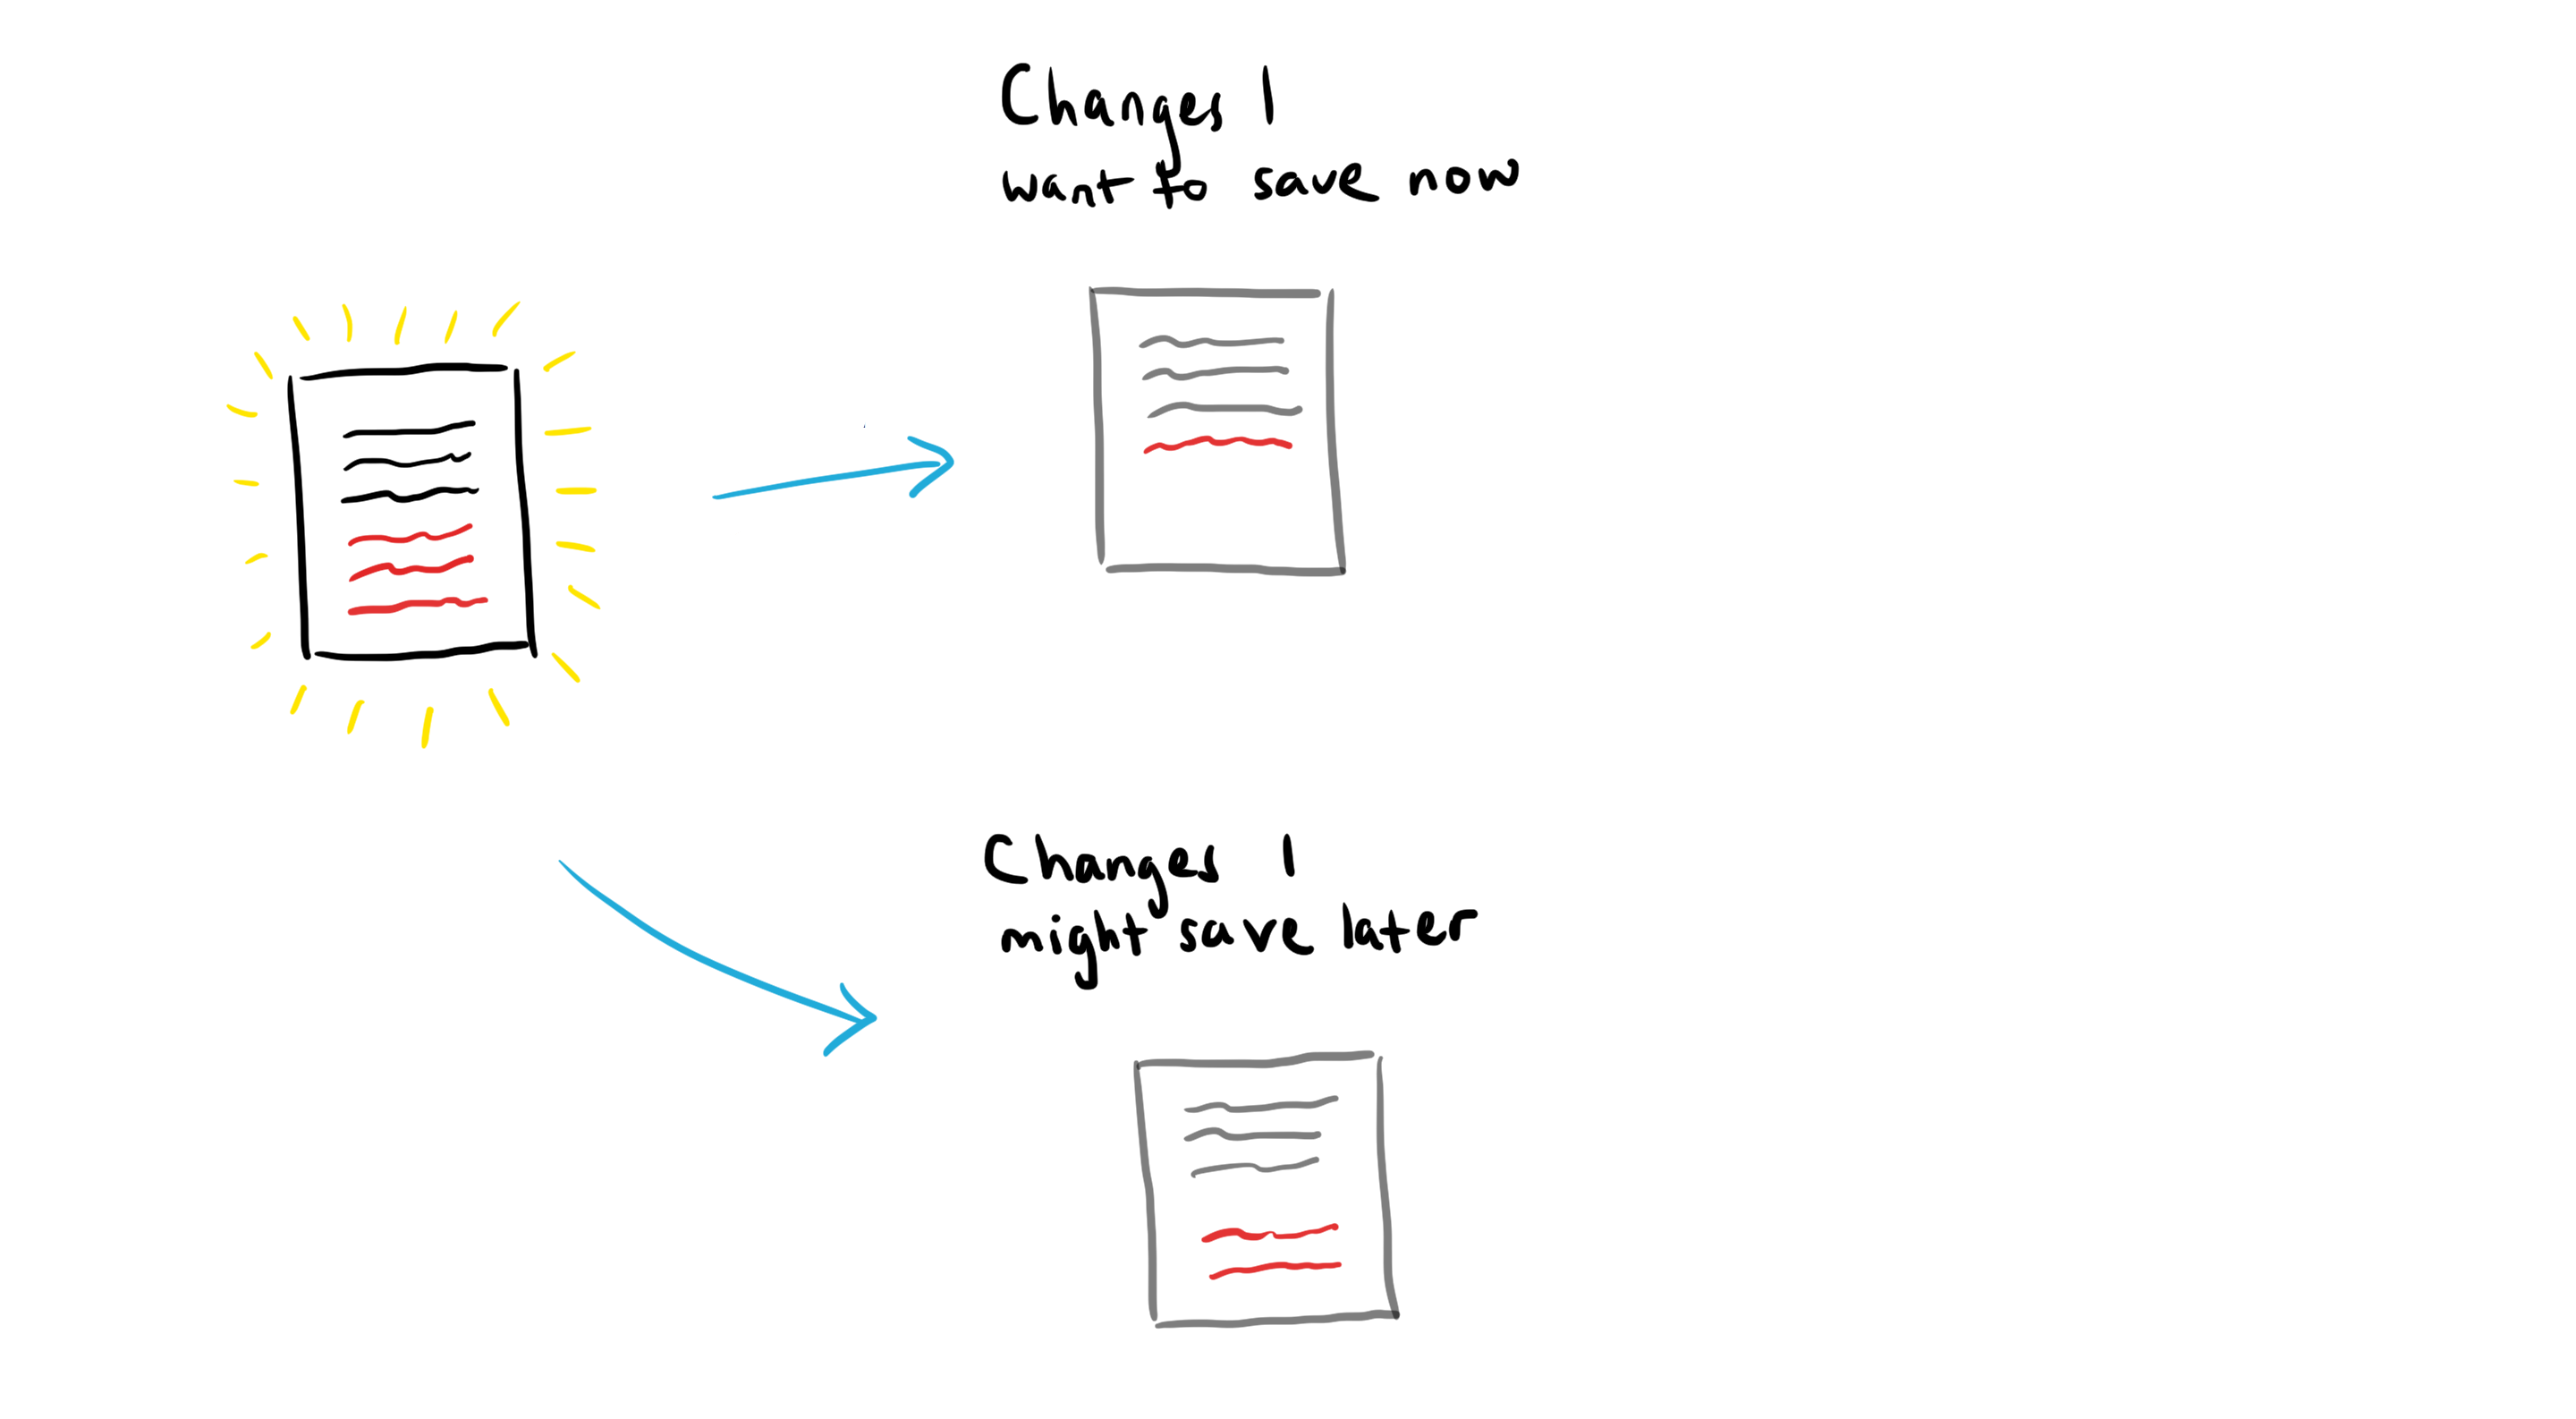 Changes I
want to save now
Changes I
might save later